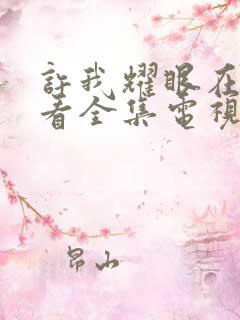 許我耀眼在
看全集電視
昂山